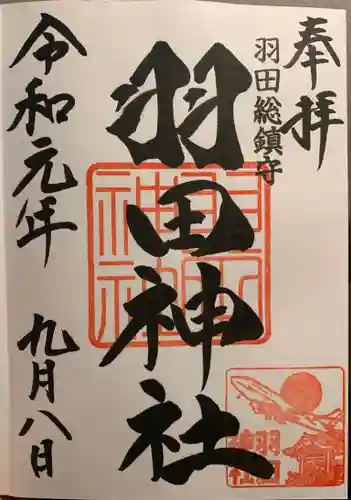 奉拝
羽田総鎮守
羽田神社
令和元年 九月八日
羽田
神社